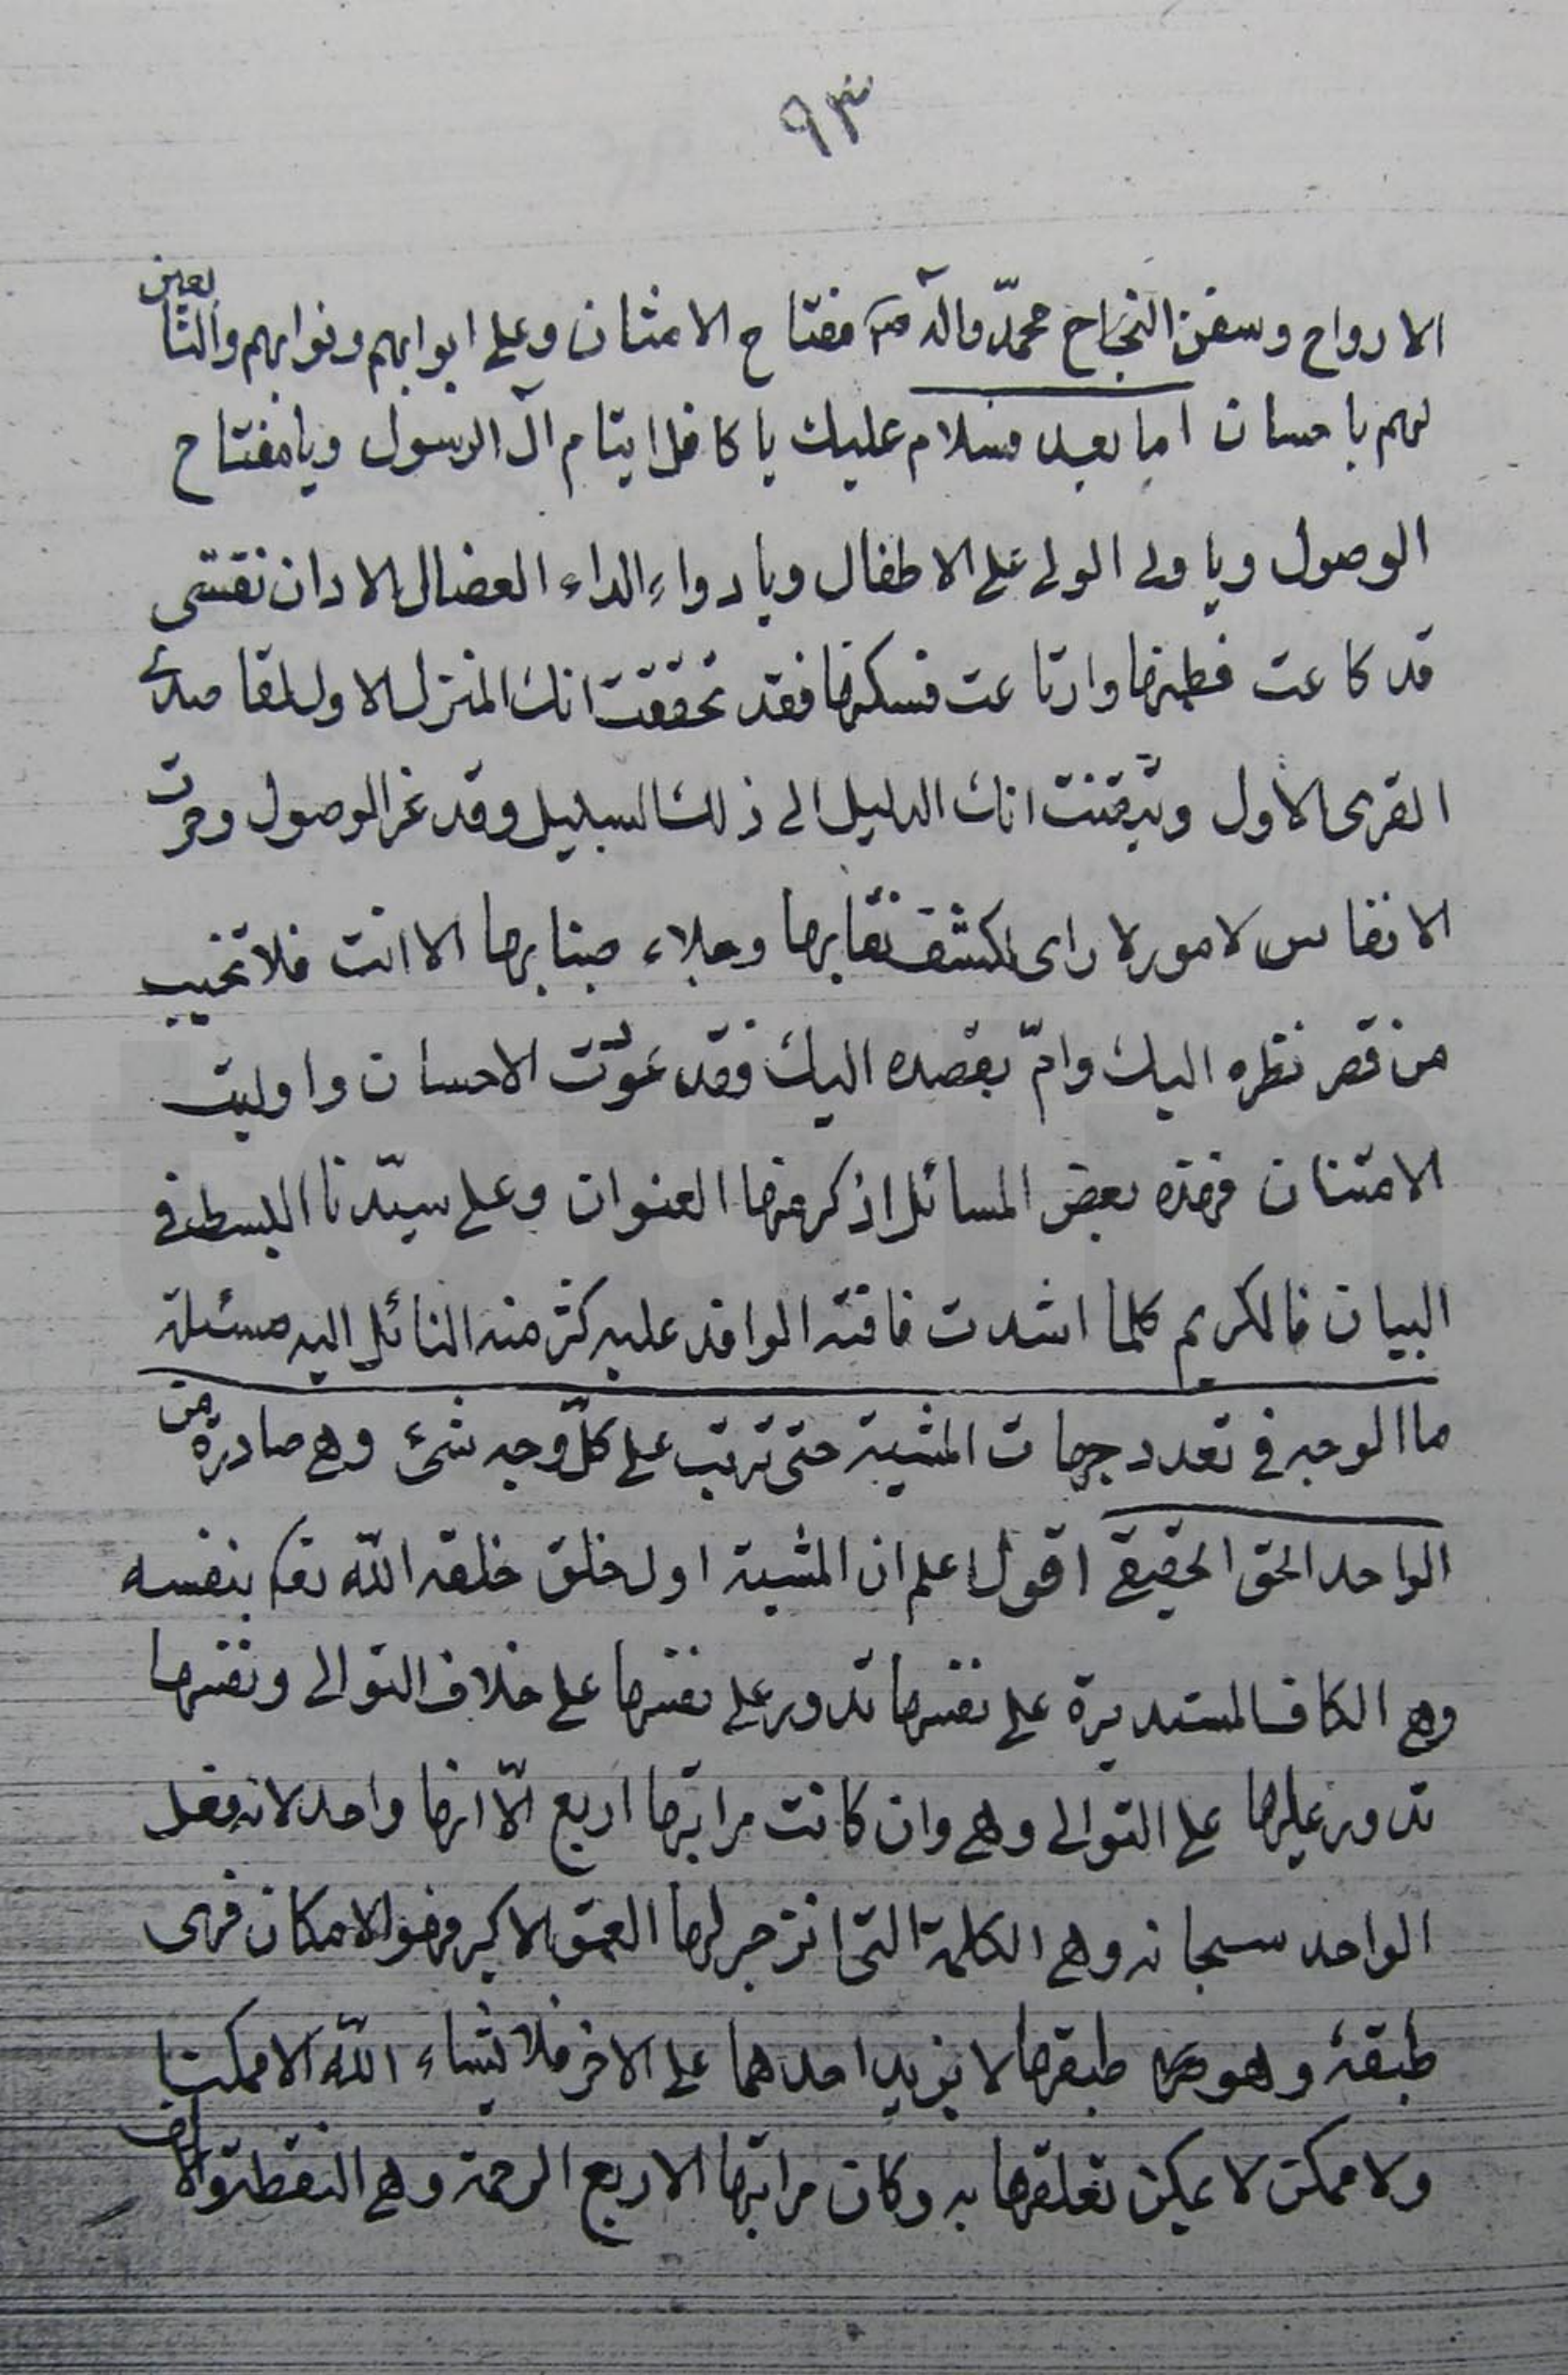 ٩٣
الارواح وسفن النجاح محمد وآله مفتاح الامتنان وعلى ابوابهم ونوابهم والتابعين
لهم باحسان اما بعد فسلام عليك يا كافل ايتام آل الرسول ويا مفتاح
الوصول ويا ولى الولى على الاطفال ويا دواء الداء العضال الا وان نفسى
قد كاعت فطمنها وارتاعت فسكنها فقد تحققت انك المنزل الاول للقاصد
القرى الاول وتيقنت انك الدليل الى ذلك السبيل وقد عز الوصول وحرت
الانفاس لامور لا راى لكشف نقابها وجلاء ضبابها الا انت فلا تخيب
من قصر نظره اليك وامّ بقصده اليك فقد عوّدت الاحسان واوليت
الامتنان فهذه بعض المسائل اذكر منها العنوان وعلى سيّدنا البسط فى
البيان فالكريم كلما اشدت فاقته الوافد عليه كثر منه النائل اليه مسئلة
ما الوجه فى تعدد جهات المشية حتى ترتب على كلّ وجه شئ وهى صادرة من
الواحد الحق الحقيقى اقول اعلم ان المشية اول خلق خلقه اللّه تعـ بنفسه
وهى الكاف المستديرة على نفسها تدور على نفسها على خلاف التوالى ونفسها
تدور عليها على التوالى وهى وان كانت مراتبها اربع الّا انها واحد لانه فعل
الواحد سبحانه وهى الكلمة التى انزجر لها العمق الاكبر وهو الامكان فهى
طبقه وهو طبقها لا يزيد احدهما على الاخر فلا يشاء اللّه الا ممكنا
ولا ممكن لا يمكن تعلقها به وكان مراتبها الاربع الرحمة وهى النقطة والالف